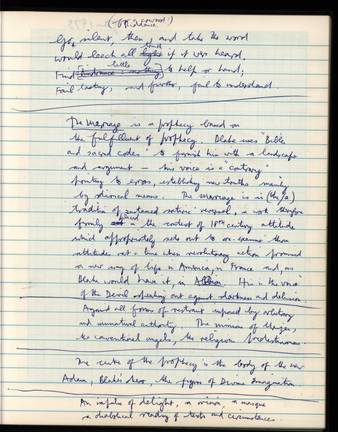 Go, silent, then, and take the word
would leach all light if it were heard.
Find little to help or hand;
Fail lasting, and further, fail to understand.
The Marriage is a prophecy based on
the fulfillment of prophecy. Blake uses "Bible
and sacred codes" to furnish him with a landscape
and argument – his voice is a "contrary"
pointing to errors, establishing new truths mainly
by satirical means. The Marriage is in (the/a)
tradition of satiric reversal, a work therefore
firmly placed in the context of 18th century attitude
which appropriately sets out to overturn those
attitudes at a time when revolutionary action promised
a new way of life in America, in France and, as
Blake would have it, in Albion. His is the voice
of the Devil speaking out against darkness and delusion
Against all forms of restraint imposed by arbitrary
and unnatural authority. The minions of
the conventional angels, the religious
The centre of the prophecy is the body of the new
Adam, Blake's hero, the figure of Divine Imagination
An impulse of delight, a vision, a unique
a diabolical reading of texts and circumstances